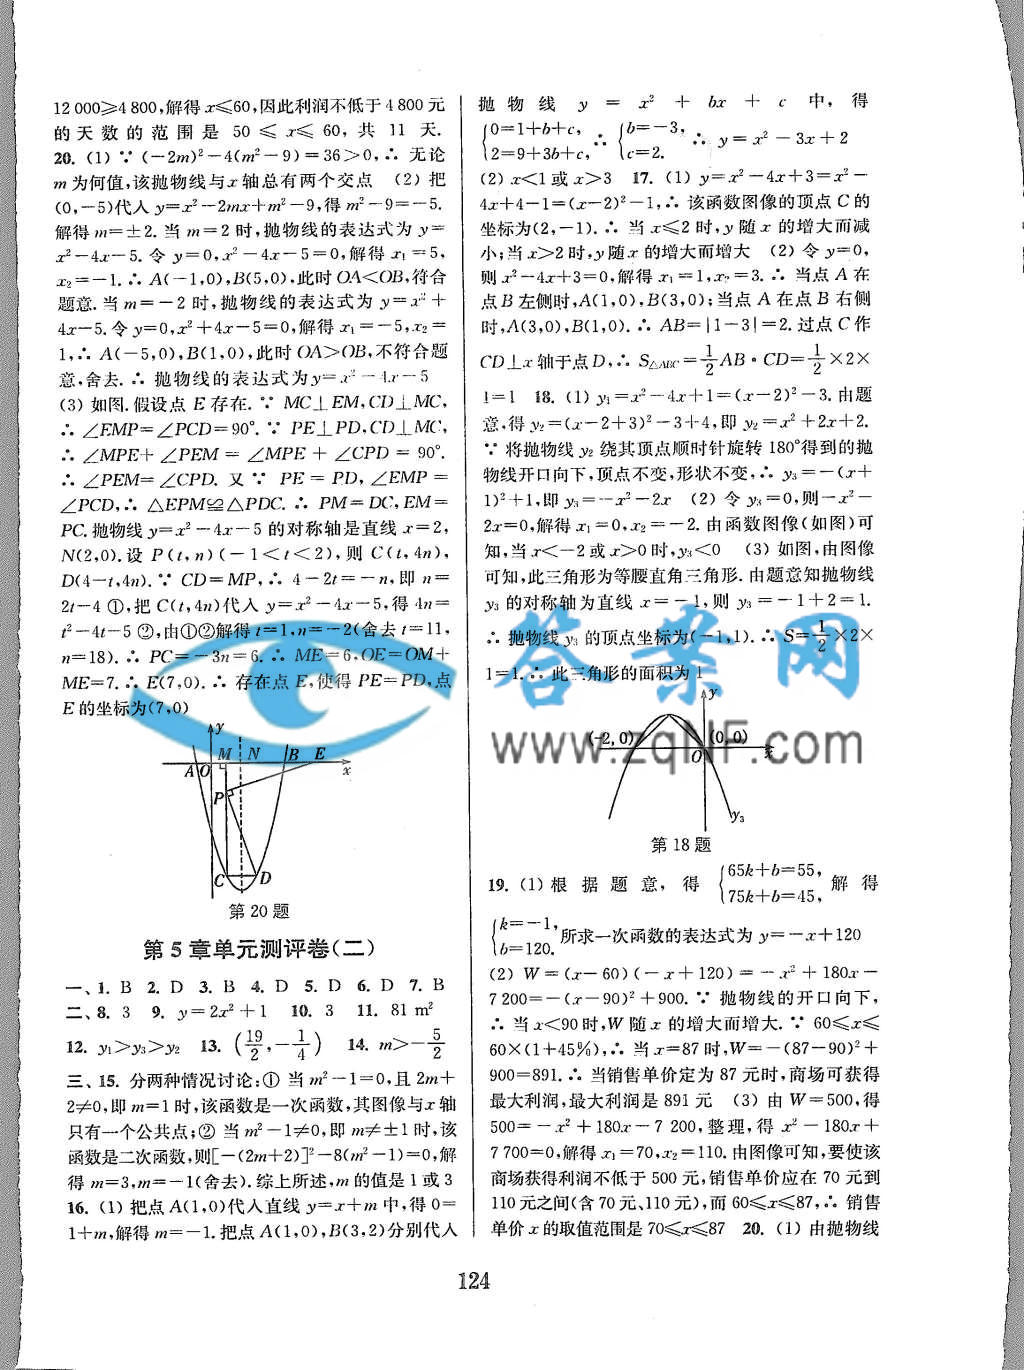 12 000≥4 800,解得 x≤60,因此利润不低于 4 800 元
的天数的范围是 50 ≤ x ≤ 60, 共 11 天.
20. (1) ∵ (-2m)²-4(m²-9)=36>0,∴ 无论
m 为何值,该抛物线与 x 轴总有两个交点 (2) 把
(0,-5)代入 y=x²-2mx+m²-9,得 m²-9=-5.
解得 m=±2. 当 m=2 时,抛物线的表达式为 y=
x²-4x-5. 令 y=0,x²-4x-5=0,解得 x₁=5,
x₂=-1.∴ A(-1,0),B(5,0),此时 OA<OB,符合
题意.当 m=-2 时,抛物线的表达式为 y=x²+
4x-5.令 y=0,x²+4x-5=0,解得 x₁=-5,x₂=
1,∴ A(-5,0),B(1,0),此时 OA>OB,不符合题
意,舍去.∴ 抛物线的表达式为 y=x²-4x-5
(3) 如图.假设点 E 存在.∵ MC⊥EM,CD⊥MC,
∴ ∠EMP=∠PCD=90°.∵ PE⊥PD,CD⊥MC,
∴ ∠MPE+∠PEM = ∠MPE + ∠CPD = 90°.
∴ ∠PEM=∠CPD. 又 ∵ PE = PD, ∠EMP =
∠PCD,∴ △EPM≌△PDC.∴ PM=DC,EM=
PC.抛物线 y=x²-4x-5 的对称轴是直线 x=2,
N(2,0).设 P(t,n)(-1<t<2),则 C(t,4n),
D(4-t,4n).∵ CD=MP,∴ 4-2t=-n,即 n=
2t-4 ①,把 C(t,4n)代入 y=x²-4x-5,得 4n=
t²-4t-5 ②,由①②解得 t=1,n=-2(舍去 t=11,
n=18).∴ PC=-3n=6.∴ ME=6,OE=OM+
ME=7.∴ E(7,0).∴ 存在点 E,使得 PE=PD,点
E 的坐标为(7,0)
y
M N B E
A O x
P
C D
第 20 题
第 5 章单元测评卷(二)
一、1. B 2. D 3. B 4. D 5. D 6. D 7. B
二、8. 3 9. y=2x²+1 10. 3 11. 81 m²
12. y₁>y₃>y₂ 13. (19/2,-1/4) 14. m>-5/2
三、15. 分两种情况讨论:① 当 m²-1=0,且 2m+
2≠0,即 m=1 时,该函数是一次函数,其图像与 x 轴
只有一个公共点;② 当 m²-1≠0,即 m≠±1 时,该
函数是二次函数,则[-(2m+2)]²-8(m²-1)=0,解
得 m=3,m=-1(舍去).综上所述,m 的值是 1 或 3
16. (1) 把点 A(1,0)代入直线 y=x+m 中,得 0=
1+m,解得 m=-1. 把点 A(1,0),B(3,2)分别代入
抛物线 y = x² + bx + c 中,得
{0=1+b+c, 2=9+3b+c, ∴ {b=-3, c=2. ∴ y=x²-3x+2
(2) x<1 或 x>3 17. (1) y=x²-4x+3=x²-
4x+4-1=(x-2)²-1,∴ 该函数图像的顶点 C 的
坐标为(2,-1).∴ 当 x≤2 时,y 随 x 的增大而减
小;当 x>2 时,y 随 x 的增大而增大 (2) 令 y=0,
则 x²-4x+3=0,解得 x₁=1,x₂=3.∴ 当点 A 在
点 B 左侧时,A(1,0),B(3,0);当点 A 在点 B 右侧
时,A(3,0),B(1,0).∴ AB=|1-3|=2.过点 C 作
CD⊥x 轴于点 D,∴ S△ABC=1/2 AB·CD=1/2×2×
1=1 18. (1) y₁=x²-4x+1=(x-2)²-3.由题
意,得 y₂=(x-2+3)²-3+4,即 y₂=x²+2x+2.
∵ 将抛物线 y₂ 绕其顶点顺时针旋转 180°得到的抛
物线开口向下,顶点不变,形状不变,∴ y₃=-(x+
1)²+1,即 y₃=-x²-2x (2) 令 y₃=0,则-x²-
2x=0,解得 x₁=0,x₂=-2. 由函数图像(如图)可
知,当 x<-2 或 x>0 时,y₃<0 (3) 如图,由图像
可知,此三角形为等腰直角三角形.由题意知抛物线
y₃ 的对称轴为直线 x=-1,则 y₃=-1+2=1.
∴ 抛物线 y₃ 的顶点坐标为(-1,1).∴ S=1/2×2×
1=1.∴ 此三角形的面积为 1
y
(-2,0) (0,0)
O x
y₃
第 18 题
19. (1) 根据题意,得 {65k+b=55, 75k+b=45, 解得
{k=-1, b=120. 所求一次函数的表达式为 y=-x+120
(2) W=(x-60)(-x+120)=-x²+180x-
7 200=-(x-90)²+900.∵ 抛物线的开口向下,
∴ 当 x<90 时,W 随 x 的增大而增大.∵ 60≤x≤
60×(1+45%),∴ 当 x=87 时,W=-(87-90)²+
900=891.∴ 当销售单价定为 87 元时,商场可获得
最大利润,最大利润是 891 元 (3) 由 W=500,得
500=-x²+180x-7 200,整理,得 x²-180x+
7 700=0,解得 x₁=70,x₂=110.由图像可知,要使该
商场获得利润不低于 500 元,销售单价应在 70 元到
110 元之间(含 70 元、110 元),而 60≤x≤87,∴ 销售
单价 x 的取值范围是 70≤x≤87 20. (1) 由抛物线
124
答案网
www.zqNF.com